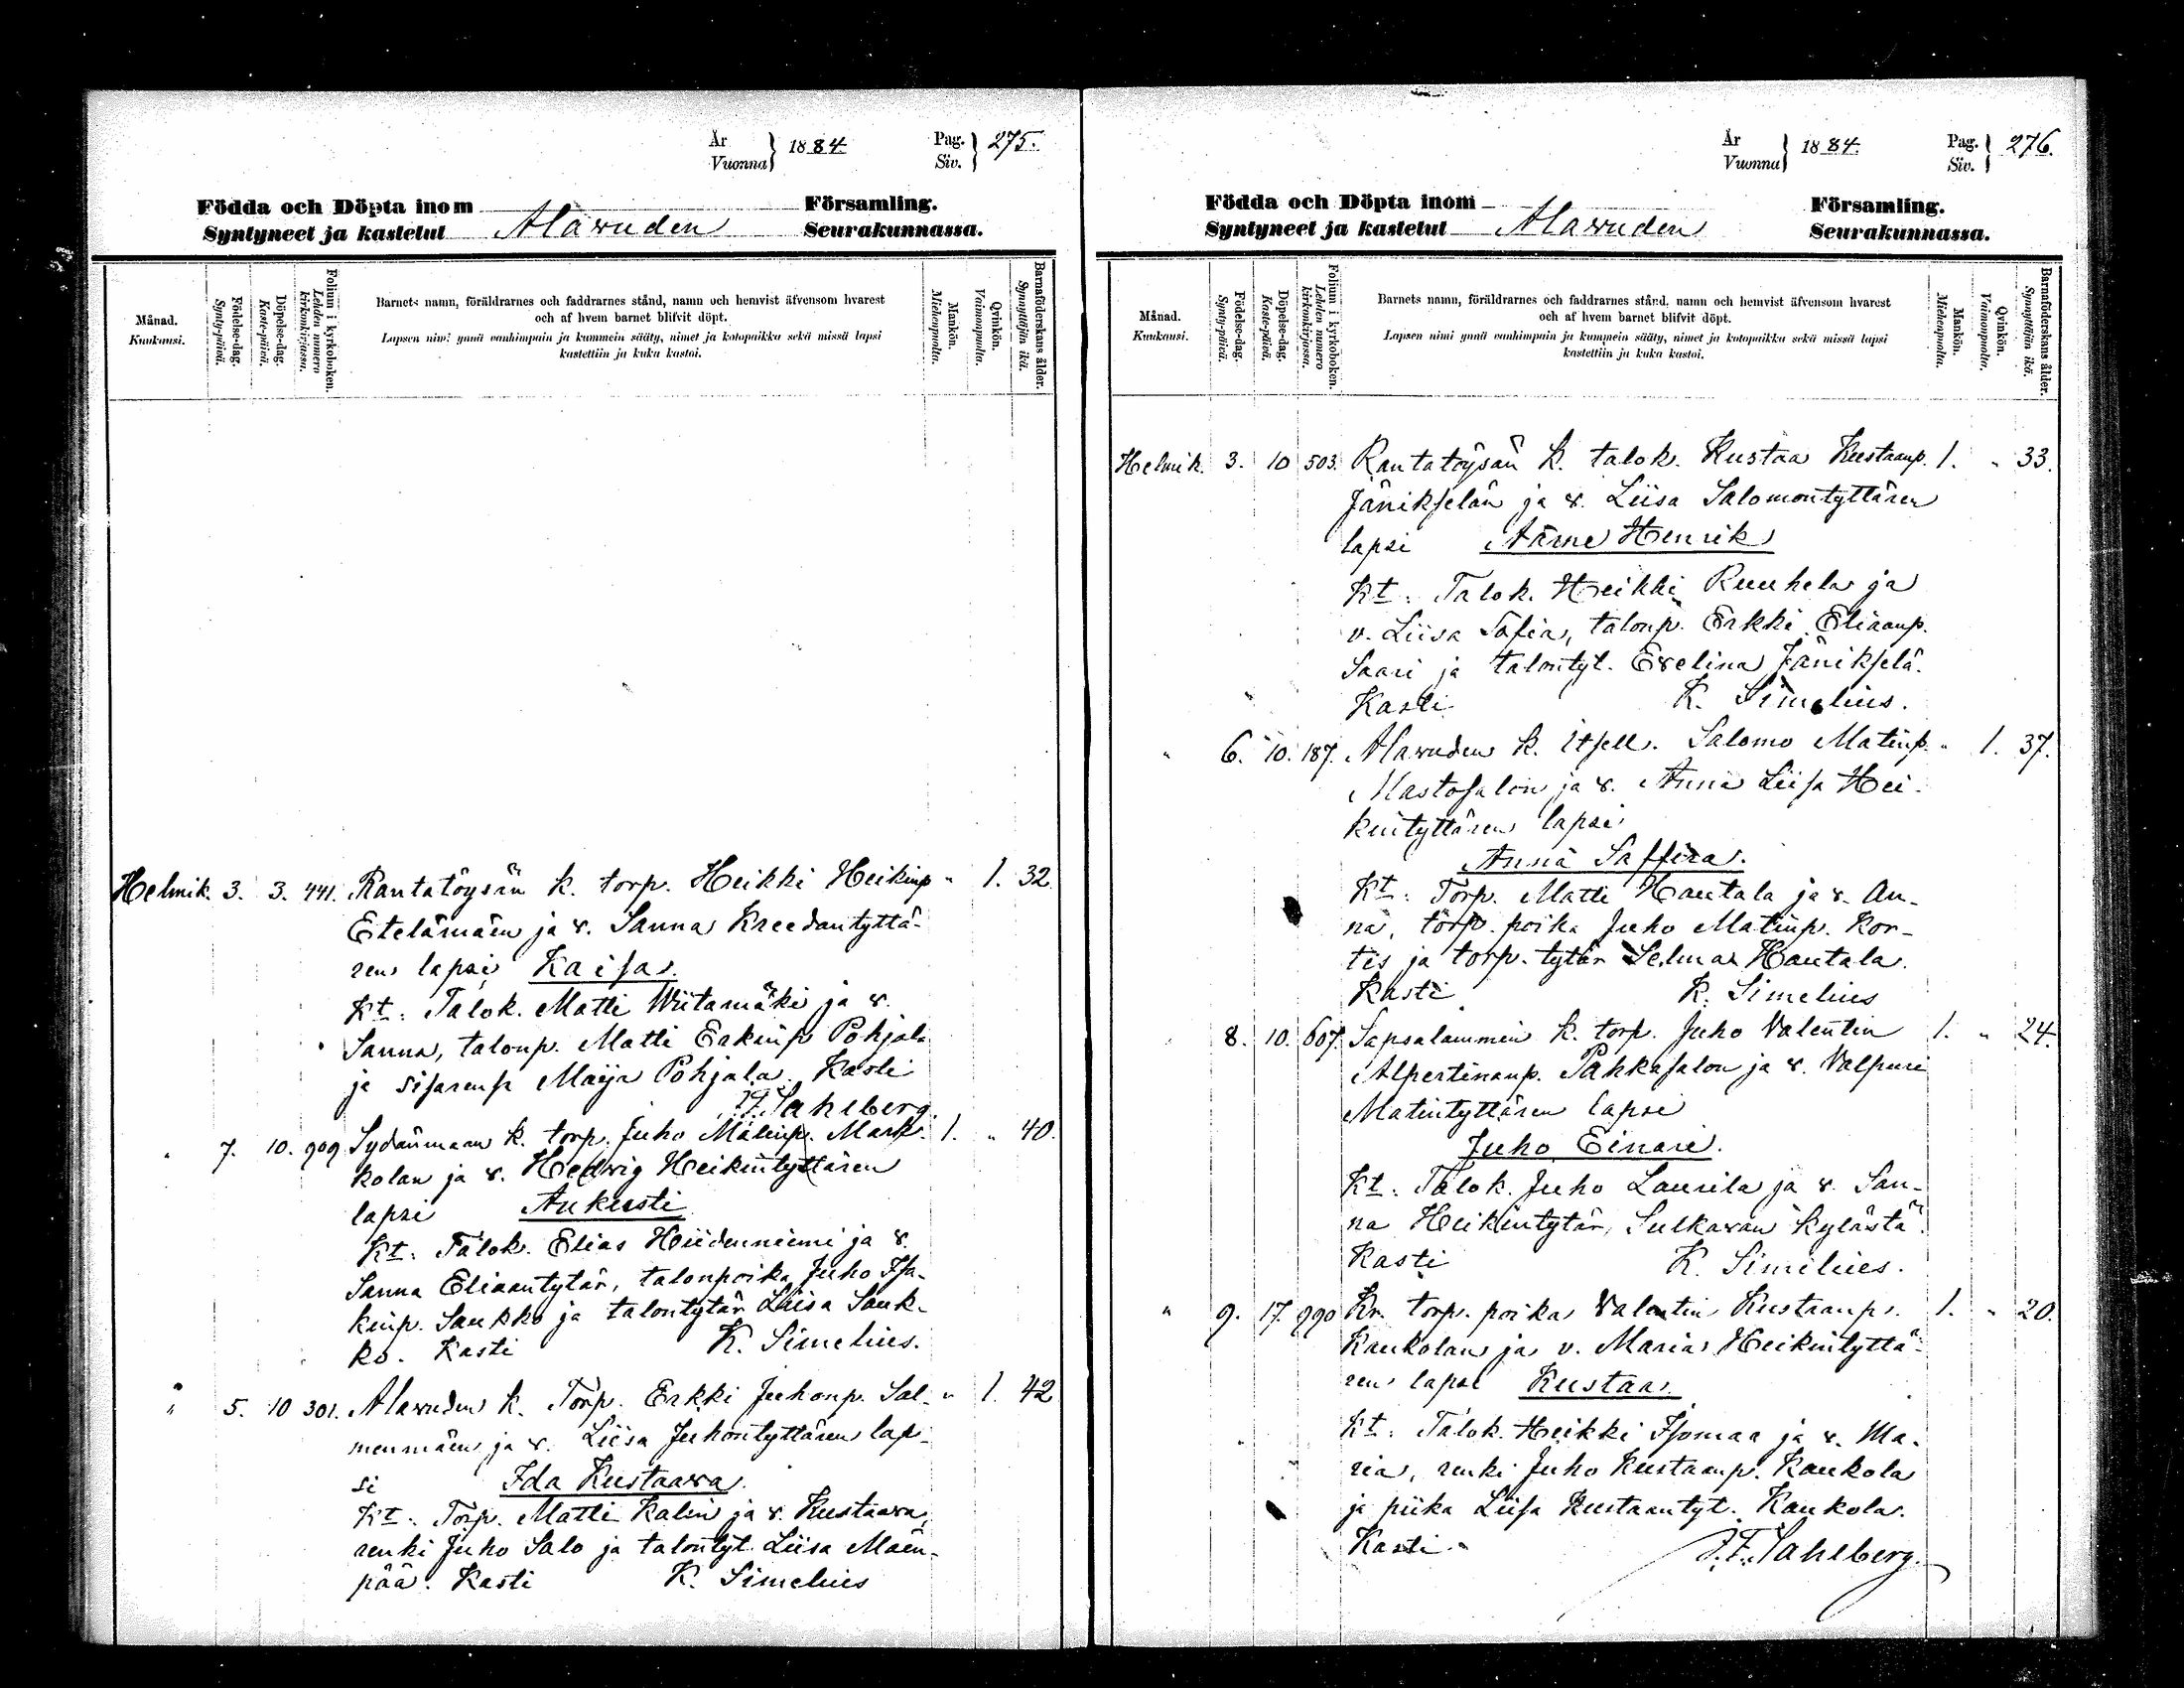 År
Vuonna } 1884 Pag.
Siv. } 275.
Födda och Döpta inom Församling.
Syntyneet ja kastetut Alavuden Seurakunnassa.
Månad.
Kuukausi.
Födelse-dag.
Synty-päivä.
Döpelse-dag.
Kaste-päivä.
Folium i kyrkoboken.
Lehden numero
kirkonkirjassa.
Barnets namn, föräldrarnes och faddrarnes stånd, namn och hemvist äfvensom hvarest
och af hvem barnet blifvit döpt.
Lapsen nimi ynnä vanhimpain ja kummein sääty, nimet ja kotopaikka sekä missä lapsi
kastettiin ja kuka kastoi.
Mankön.
Miehenpuolta.
Qvinkön.
Vaimonpuolta.
Barnaföderskans ålder.
Synnyttäjän ikä.
Helmik. 3. 3. 441. Rantatöysän k. torp. Heikki Heikinp " 1. 32
Etelämäen ja v. Sanna Kreedantyttä-
ren lapsi Kaisa.
Kt: Talok. Matti Wiitamäki ja v.
Sanna, talonp. Matti Erkinp Pohjola
ja sisarensa Maija Pohjala. Kasti
F. Sahlberg.
" 7. 10. 909 Sydänmaan k. torp. Juho Matinp. Mark- 1. " 40.
kolan ja v. Hedvig Heikintyttären
lapsi Aukusti
Kt: Talok. Elias Hiidenniemi ja v.
Sanna Eliaantytär, talonpoika Juho Isa-
kinp. Saukko ja talontytär Liisa Sauk-
ko. Kasti K. Simelius.
" 5. 10 301. Alavuden k. Torp. Erkki Juhonp. Sal- " 1. 42
menmäen ja v. Liisa Juhontyttären lap-
si Ida Kustaava.
Kt: Torp. Matti Kalin ja v. Kustaava,
renki Juho Salo ja talontyt. Liisa Mäen-
pää. Kasti K. Simelius
År
Vuonna } 1884. Pag.
Siv. } 276.
Födda och Döpta inom Församling.
Syntyneet ja kastetut Alavuden Seurakunnassa.
Månad.
Kuukausi.
Födelse-dag.
Synty-päivä.
Döpelse-dag.
Kaste-päivä.
Folium i kyrkoboken.
Lehden numero
kirkonkirjassa.
Barnets namn, föräldrarnes och faddrarnes stånd, namn och hemvist äfvensom hvarest
och af hvem barnet blifvit döpt.
Lapsen nimi ynnä vanhimpain ja kummein sääty, nimet ja kotopaikka sekä missä lapsi
kastettiin ja kuka kastoi.
Mankön.
Miehenpuolta.
Qvinkön.
Vaimonpuolta.
Barnaföderskans ålder.
Synnyttäjän ikä.
Helmik. 3. 10 503. Rantatöysän k. talok. Kustaa Kustaanp. 1. " 33.
Jänikselän ja v. Liisa Salomontyttären
lapsi Aarne Henrik
Kt: Talok. Heikki Ruuhela ja
v. Liisa Sofia, talonp. Erkki Eliaanp.
Saari ja talontyt. Evelina Jänikselä.
Kasti K. Simelius.
" 6. 10. 187. Alavuden k. itsell. Salomo Matinp. " 1. 37.
Mastosalon ja v. Anna Liisa Hei-
kintyttären lapsi
Anna Saffira.
Kt: Torp. Matti Hautala ja v. An-
na, torp. poika Juho Matinp. Kor-
tes ja torp. tytär Selma Hautala.
Kasti K. Simelius
" 8. 10. 607. Sapsalammin k. torp. Juho Valentin 1. " 24.
Alpertinanp. Pahkasalon ja v. Valpuri
Matintyttären lapsi
Juho Einari.
Kt: Talok. Juho Laurila ja v. San-
na Heikintytär, Sulkavan kylästä.
Kasti K. Simelius.
" 9. 17. 990 Kr. torp. poika Valentin Kustaanp. 1. " 20.
Kaukolan ja v. Maria Heikintyttä-
ren lapsi Kustaa.
Kt: Talok. Heikki Isomaa ja v. Ma-
ria, renki Juho Kustaanp. Kaukola
ja piika Liisa Kustaantyt. Kaukola.
Kasti F. F. Sahlberg.